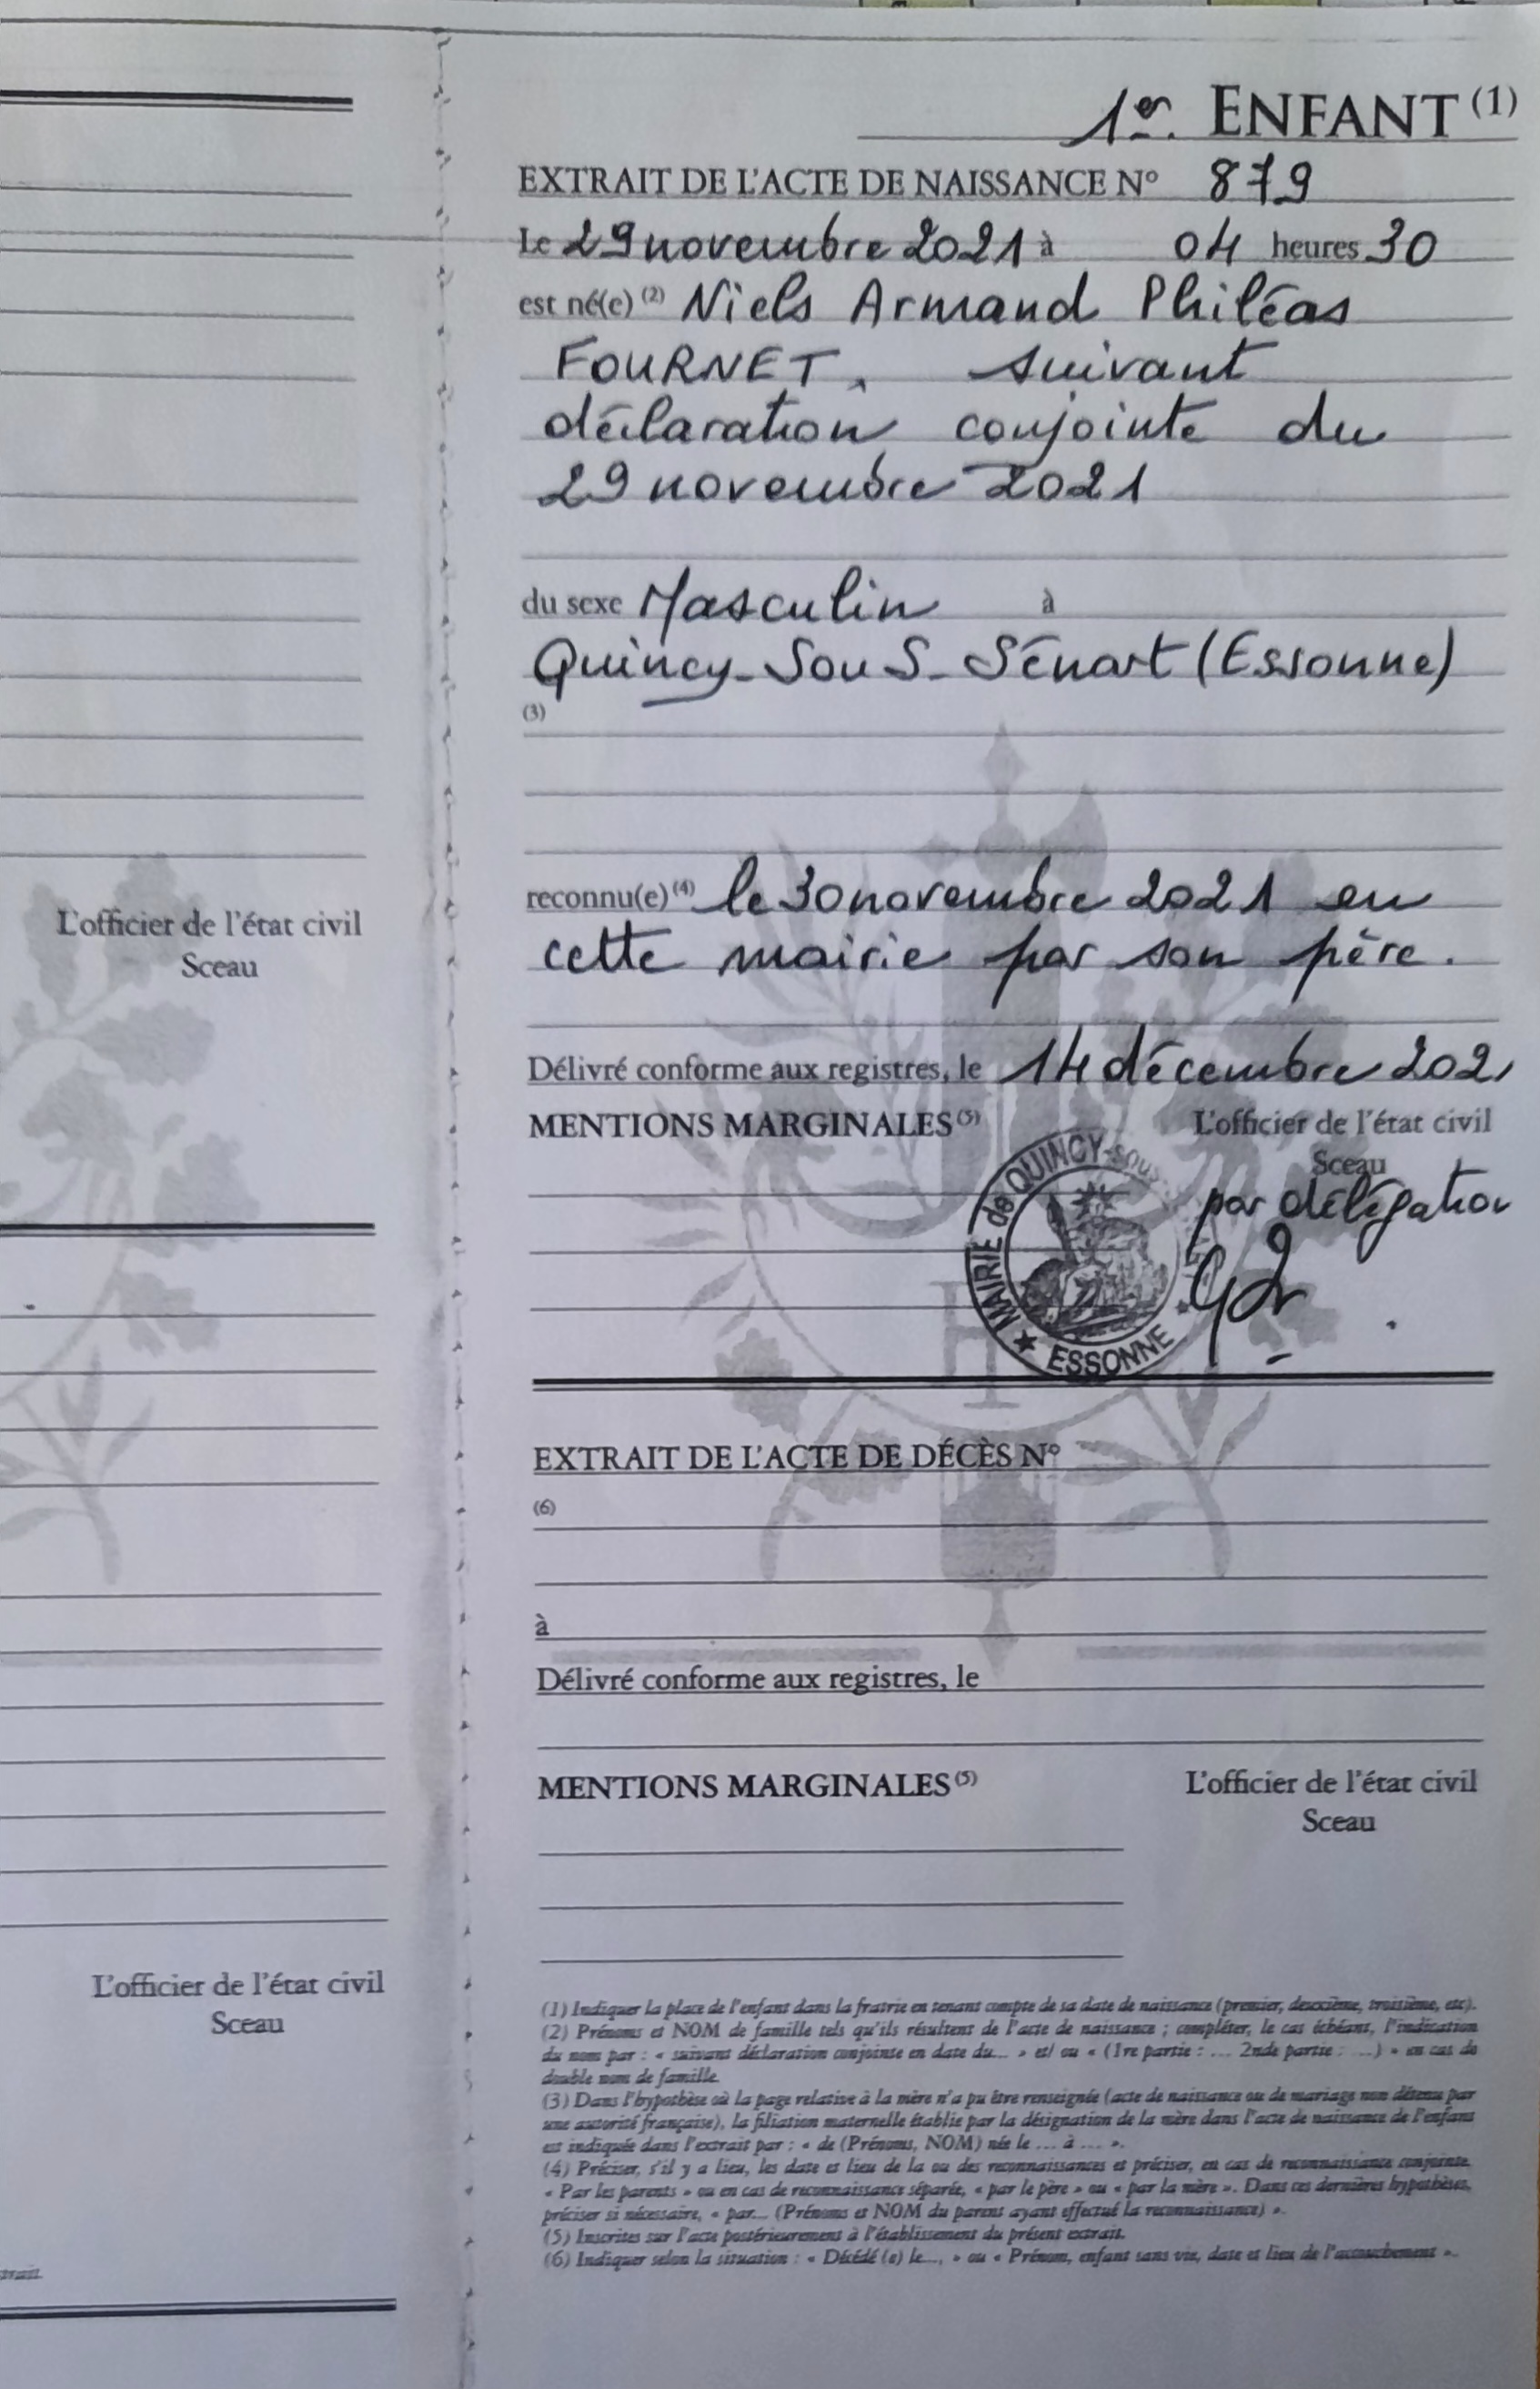 1er. ENFANT (1)
EXTRAIT DE L'ACTE DE NAISSANCE N° 879
Le 29 novembre 2021 à 04 heures 30
est né(e) (2) Niels Armand Philéas
FOURNET, suivant
déclaration conjointe du
29 novembre 2021
du sexe Masculin à
Quincy-Sous-Sénart (Essonne)
(3)
reconnu(e) (4) le 30 novembre 2021 en
cette mairie par son père.
Délivré conforme aux registres, le 14 décembre 2021
MENTIONS MARGINALES (5)
L'officier de l'état civil
Sceau
par délégation
MAIRIE de QUINCY-sous
ESSONNE
EXTRAIT DE L'ACTE DE DÉCÈS N°
(6)
à
Délivré conforme aux registres, le
MENTIONS MARGINALES (5)
L'officier de l'état civil
Sceau
(1) Indiquer la place de l'enfant dans la fratrie en tenant compte de sa date de naissance (premier, deuxième, troisième, etc).
(2) Prénoms et NOM de famille tels qu'ils résultent de l'acte de naissance ; compléter, le cas échéant, l'indication
du nom par : « suivant déclaration conjointe en date du... » et/ ou « (1re partie : ... 2nde partie : ...) » en cas de
double nom de famille.
(3) Dans l'hypothèse où la page relative à la mère n'a pu être renseignée (acte de naissance ou de mariage non détenu par
une autorité française), la filiation maternelle établie par la désignation de la mère dans l'acte de naissance de l'enfant
est indiquée dans l'extrait par : « de (Prénoms, NOM) née le ... à ... ».
(4) Préciser, s'il y a lieu, les date et lieu de la ou des reconnaissances et préciser, en cas de reconnaissance conjointe,
« Par les parents » ou en cas de reconnaissance séparée, « par le père » ou « par la mère ». Dans ces dernières hypothèses,
préciser si nécessaire, « par... (Prénoms et NOM du parent ayant effectué la reconnaissance) ».
(5) Inscrites sur l'acte postérieurement à l'établissement du présent extrait.
(6) Indiquer selon la situation : « Décédé (e) le..., » ou « Prénom, enfant sans vie, date et lieu de l'accouchement ».
L'officier de l'état civil
Sceau
L'officier de l'état civil
Sceau